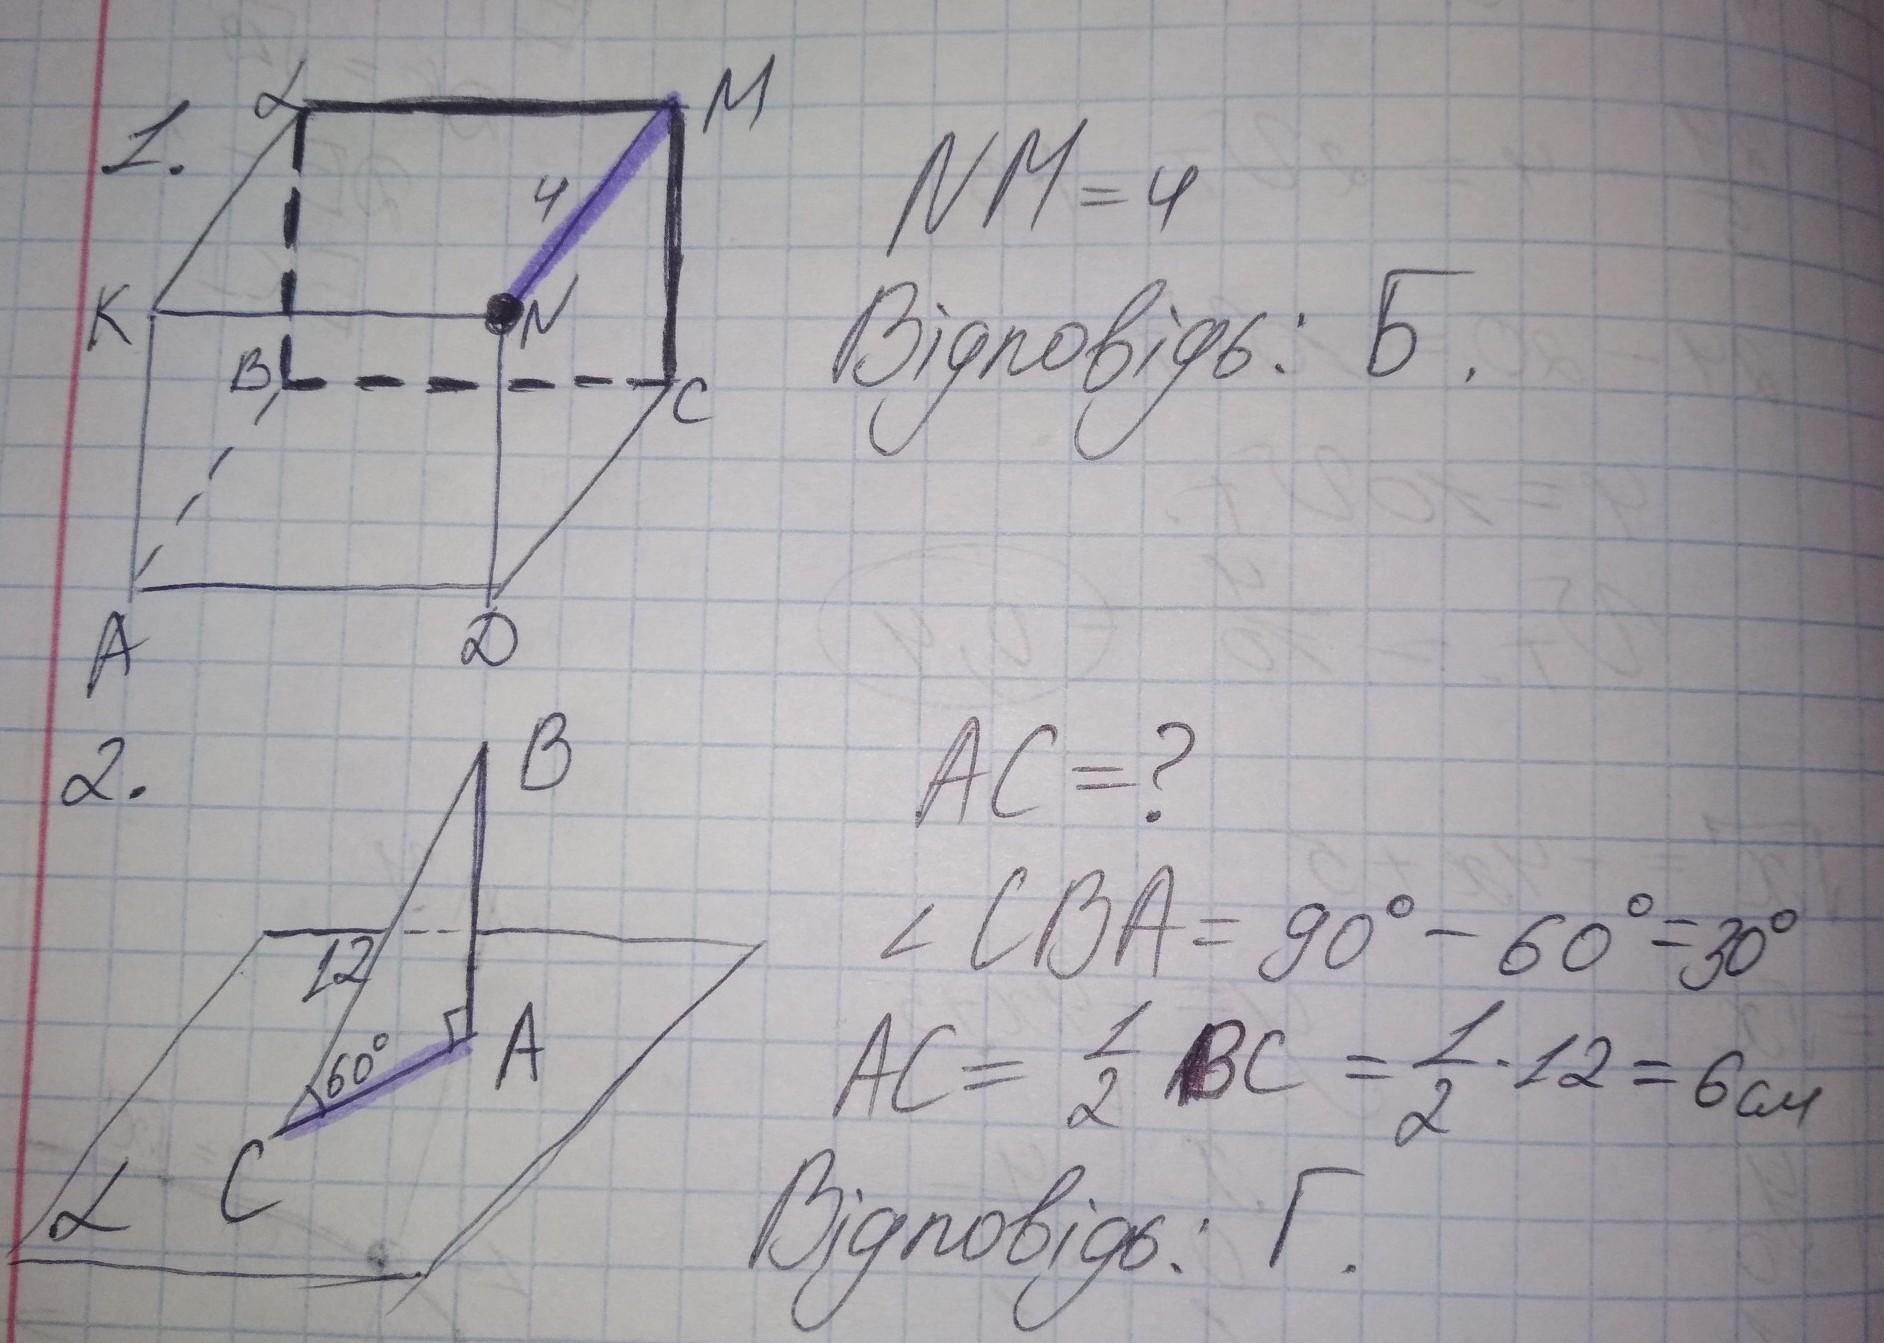 1.
L M
4
K N
B C
A D
NM = 4
Відповідь: Б.
2.
B
12
60°
A
C
α
AC = ?
∠CBA = 90° - 60° = 30°
AC = 1/2 BC = 1/2 · 12 = 6 см
Відповідь: Г.